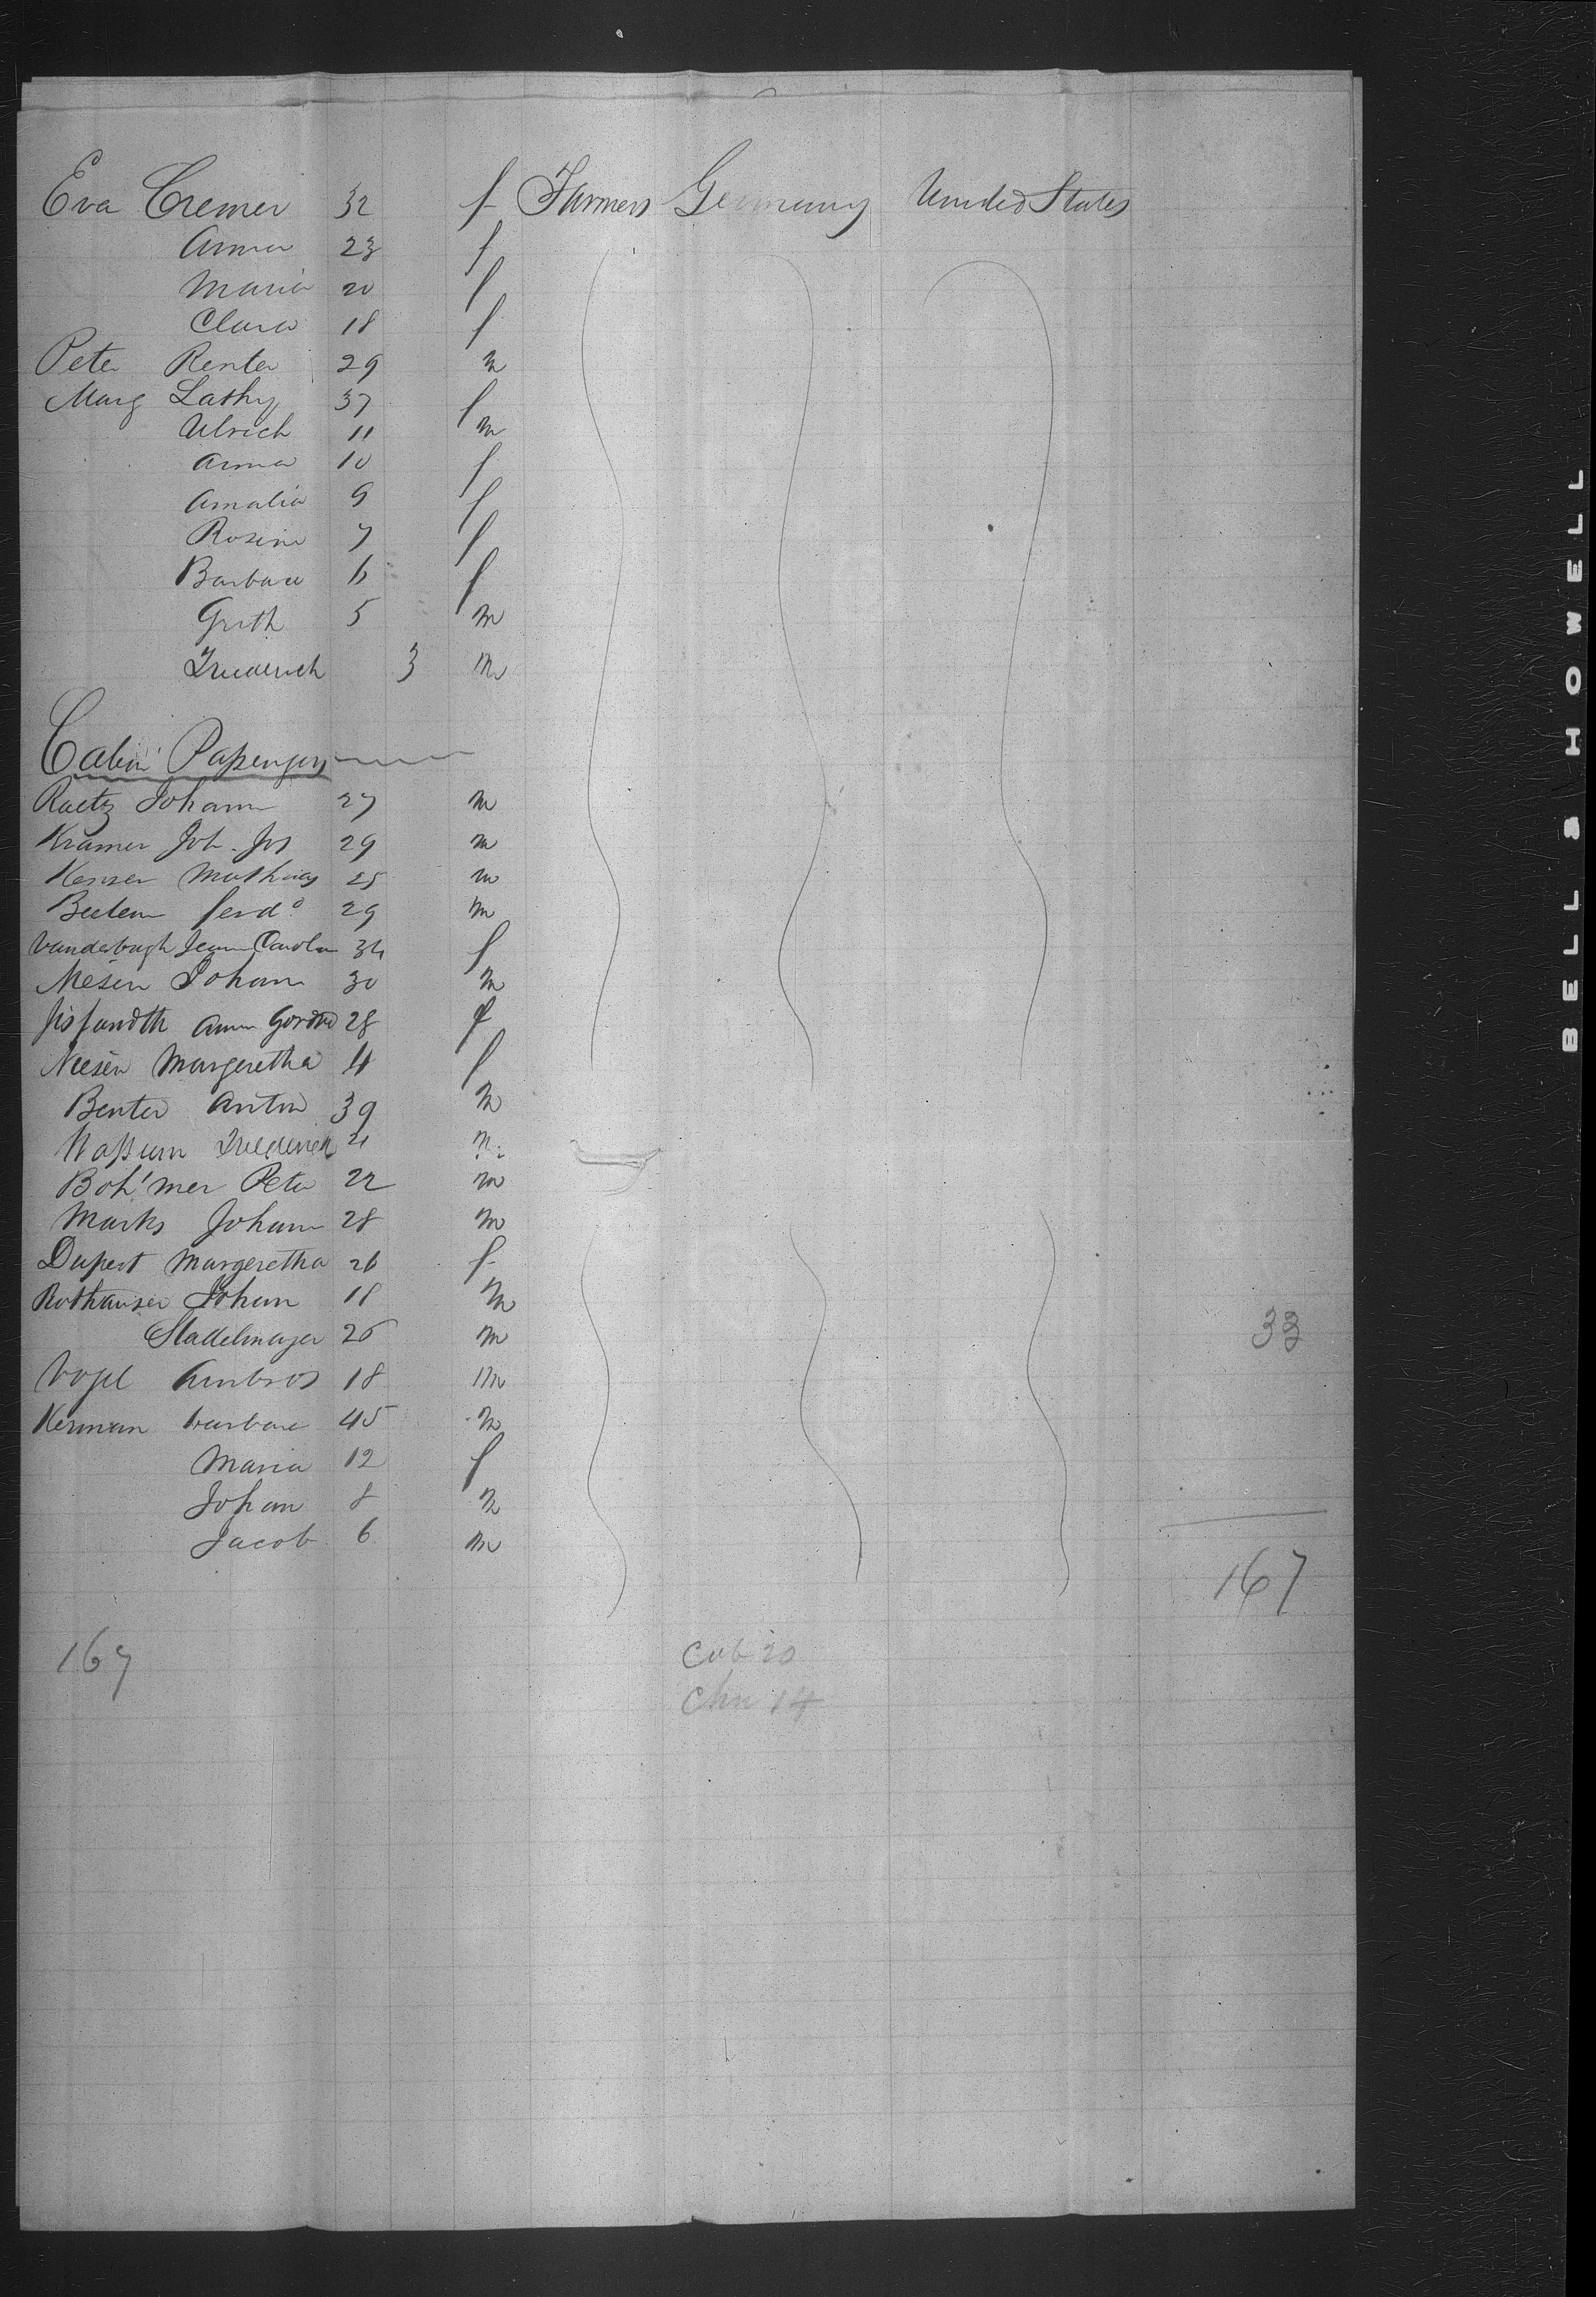 Eva Cremer 32 f Farmers Germany United States
Anna 23 f
Maria 20 f
Clara 18 f
Peter Renter 29 m
Marg Lathy 37 f
Ulrich 11 m
Anna 10 f
Amalia 9 f
Rosine 7 f
Barbara 6 f
Grith 5 m
Friederich 3 m
Cabin Passengers
Raetz Johann 27 m
Kramer Joh. Jos 29 m
Kenser Mathias 25 m
Beelem ferdo 29 m
Vanderbugh Jean Carolin 34 f
Mesen Johann 30 m
Anna 28 f
Niesen Margeretha 4 f
Benter Anton 39 m
Waßum Friederich 21 m
Boh'mer Peter 22 m
Marks Johann 28 m
Dupert Margeretha 26 f
Rothauser Johann 18 m
Stadelmayer 26 m
33
Vogel Ambros 18 m
Kerman barbara 45 m
Maria 12 f
Johan 8 m
Jacob 6 m
167
167 Cab 20
Chn 14
BELL & HOWELL